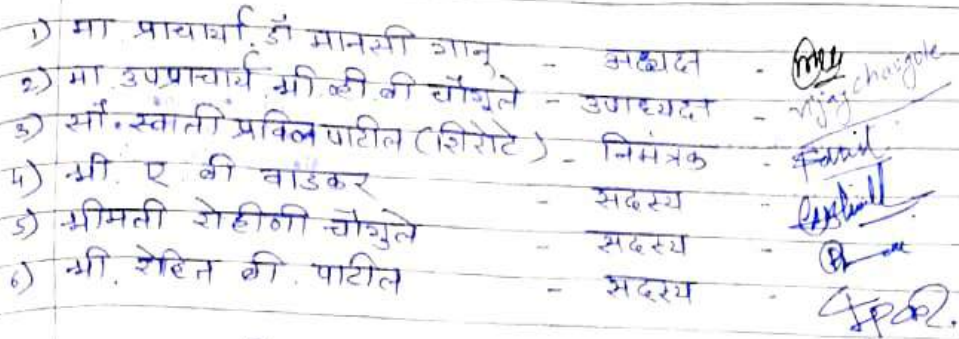 1) मा प्राचार्या डॉ मानसी गानू - अध्यक्ष -
2) मा उपप्राचार्य श्री. व्ही. बी चौगुले - उपाध्यक्ष - Vijay chaugule
3) सौ. स्वाती प्रविण पाटील (शिरोटे) - निमंत्रक - Patil
4) श्री. ए. बी वाडकर - सदस्य
5) श्रीमती रोहीणी चौगुले - सदस्य -
6) श्री. रोहित बी. पाटील - सदस्य -